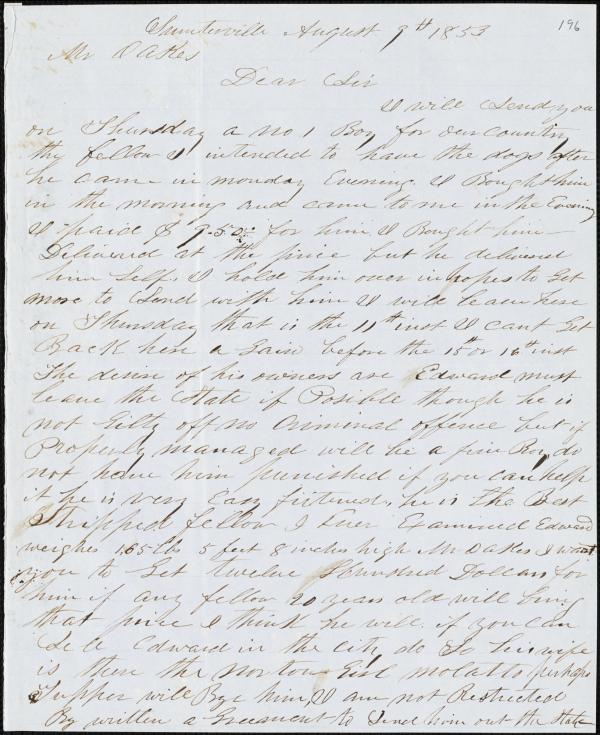 Sumterville August 9th 1853
196
Mr Oakes
Dear Sir
I will Send you
on Thursday a no 1 Boy for our countin
thy fellow I intended to have the dogs after
he came in monday Evening. I Bought him
in the morning and came to me in the Evening
I paid $ 950 for him I Bought him
Delivered at the price but he delivered
him Self. I hold him over in hopes to Get
more to Send with him I will leave here
on Thursday that is the 11th inst I cant Get
Back here a Gain before the 15th or 16th inst
The desire of his owners are Edward must
leave the State if Posible though he is
not Gilty off no Criminal offence but if
Properly managed will be a fine Boy do
not have him punished if you can help
it he is very Easy fritened. he is the Best
Stripped fellow I Ever Examined Edward
weighes 165 lbs 5 feet 8 inches high Mr Oakes I want
you to Get twelve Hundred Dollars for
him if any fellow 20 years old will bring
that price I think he will. if you can
Sell Edward in the city do So his wife
is there the Norton Girl molatto perhaps
Tupper will Bye him, I am not Restricted
By written a Greement to Send him out the State